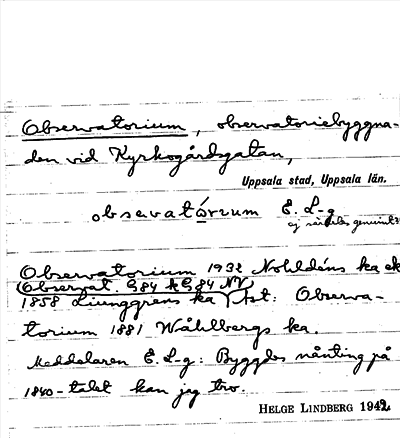 Observatorium, observatoriebyggna-
den vid Kyrkogårdsgatan,
Uppsala stad, Uppsala län.
obsevatórium E. L-g
ej särdeles genuint
Observatorium 1932 Nohldéns ka ek
Observat. G84 NV
1858 Ljunggrens ka Ast: Observa-
torium 1881 Wåhlbergs ka.
Meddelaren E. L-g: Byggdes nånting på
1840-talet kan jag tro.
HELGE LINDBERG 1942